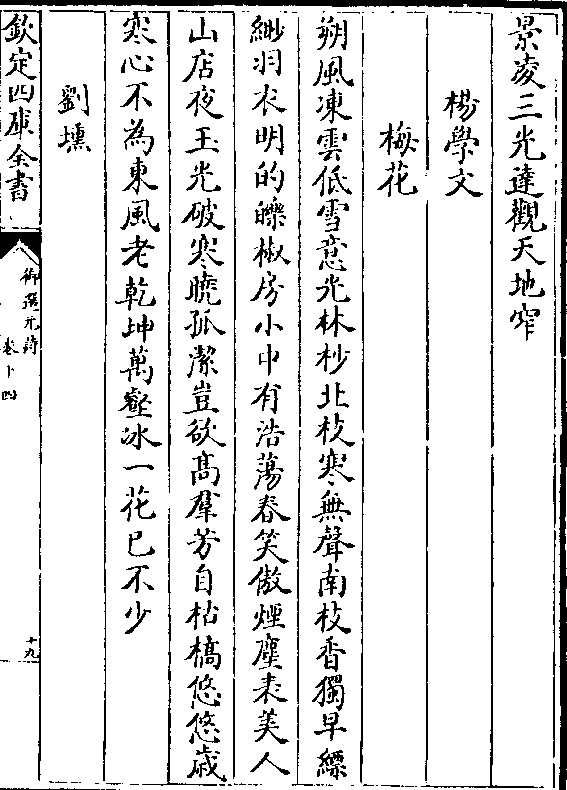 景凌三光達觀天地窄
楊學文
梅花
朔風凍雲低雪意光林杪北枝寒無聲南枝香獨早縹
緲羽衣明的皪椒房小中有浩蕩春笑傲煙塵表美人
山店夜玉光破寒曉孤潔豈欲高羣芳自枯槁悠悠歲
寒心不為東風老乾坤萬壑冰一花已不少
劉壎
欽定四庫全書
御選元詩
卷十四
十九